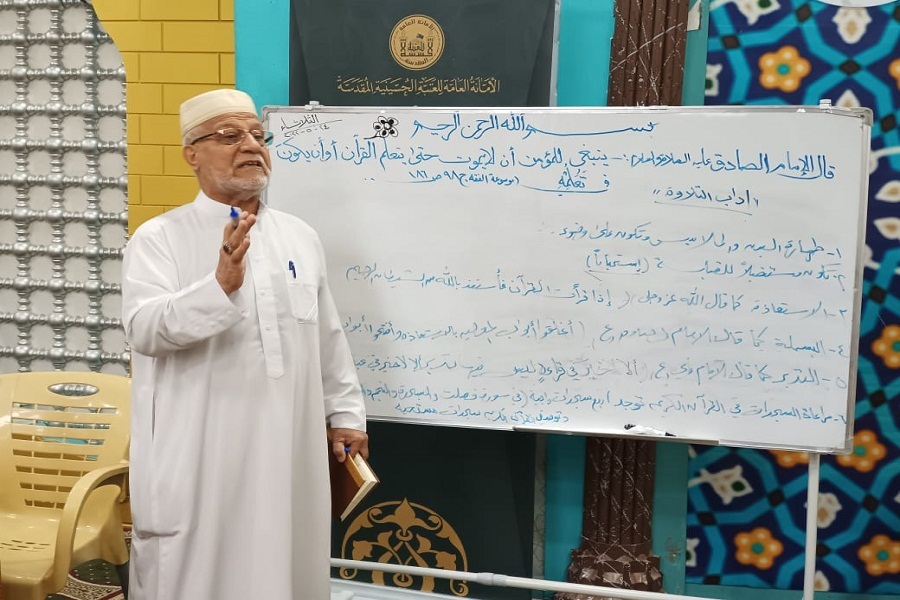 الأمانة العامة للعتبة الحسينية المقدسة
بسم الله الرحمن الرحيم
الثلاثاء
قال الإمام الصادق عليه السلام :- ينبغي للمؤمن أن لا يموت حتى يتعلم القرآن أو أن يكون
في تعلمه (موسوعة الفقه ج٩٨ ص١٨٦
آداب التلاوة
١- طهارة البدن والملابس وتكون على وضوء
٢- تكون مستقبلاً للقبلة (إستحباباً)
٣- الاستعاذة كما قال الله عز وجل إذا قرأت القرآن فأستعذ بالله من الشيطان الرجيم
٤- البسملة كما قال الإمام الصادق ع أغلقوا أبواب بالاستعاذة وأفتحوا أبواب
٥- التدبر كما قال الإمام علي ع ألا لا خير في قراءة ليس فيها تدبر ألا لا خير في
٦- مراعاة السجدات في القرآن الكريم توجد أربع سجدات واجبة في سورة فصلت والسجدة والنجم